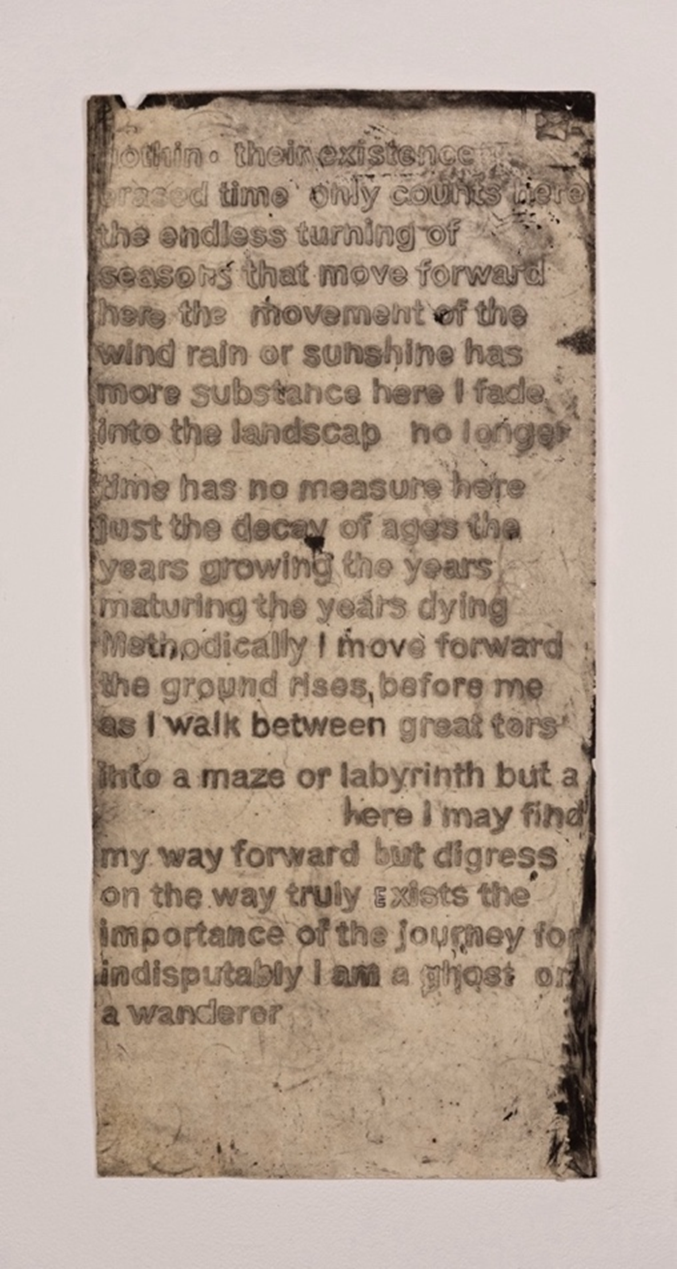 nothin their existence
erased time only counts here
the endless turning of
seasons that move forward
here the movement of the
wind rain or sunshine has
more substance here I fade
into the landscap no longer
time has no measure here
just the decay of ages the
years growing the years
maturing the years dying
Methodically I move forward
the ground rises, before me
as I walk between great tors
into a maze or labyrinth but a
here I may find
my way forward but digress
on the way truly Exists the
importance of the journey for
indisputably I am a ghost or
a wanderer